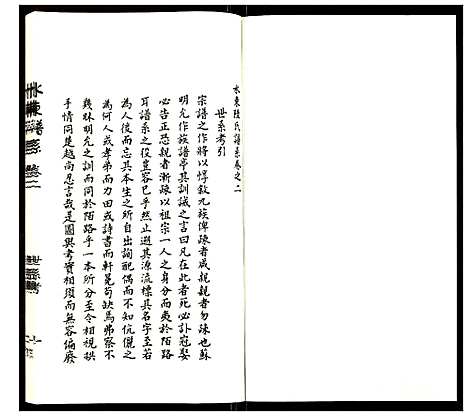 水東陸氏譜系卷之二
世系考引
宗譜之作將以惇敘九族俾疎者咸親親者勿疎也蘇
明允作族譜亭其訓誡之言曰凡在此者死必訃冠娶
必告正恐親者漸疎以祖宗一人之身分而夷於陌路
耳譜系之役豈容已乎然止遡其源流標其名字至若
為人後而忘其本生之所自出詢配偶而不知伉儷之
為何人或孝弟力田或詩書而軒冕苟缺焉弗察不
幾昧明允之訓而同於陌路乎一本所分至令相視拱
手情同楚越尚忍言哉是圖與考實相須而無容偏廢
水東譜系 卷二
世系考